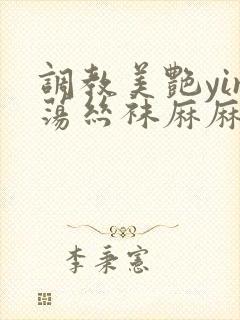 調教美艷yin
蕩絲袜麻麻
李秉憲